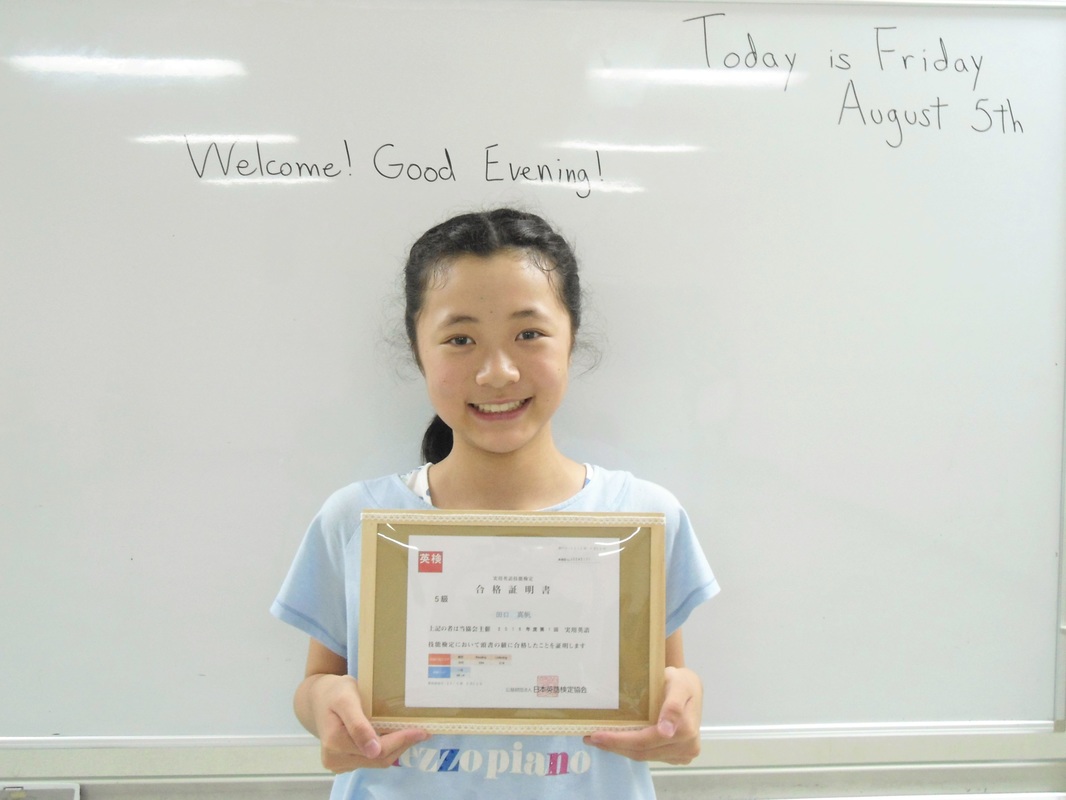 Today is Friday
August 5th
Welcome! Good Evening!
英検
実用英語技能検定
合格証明書
5級
上記の者は当協会主催 2016年度第1回 実用英語
技能検定において頭書の級に合格したことを証明します
公益財団法人 日本英語検定協会
mezzo piano